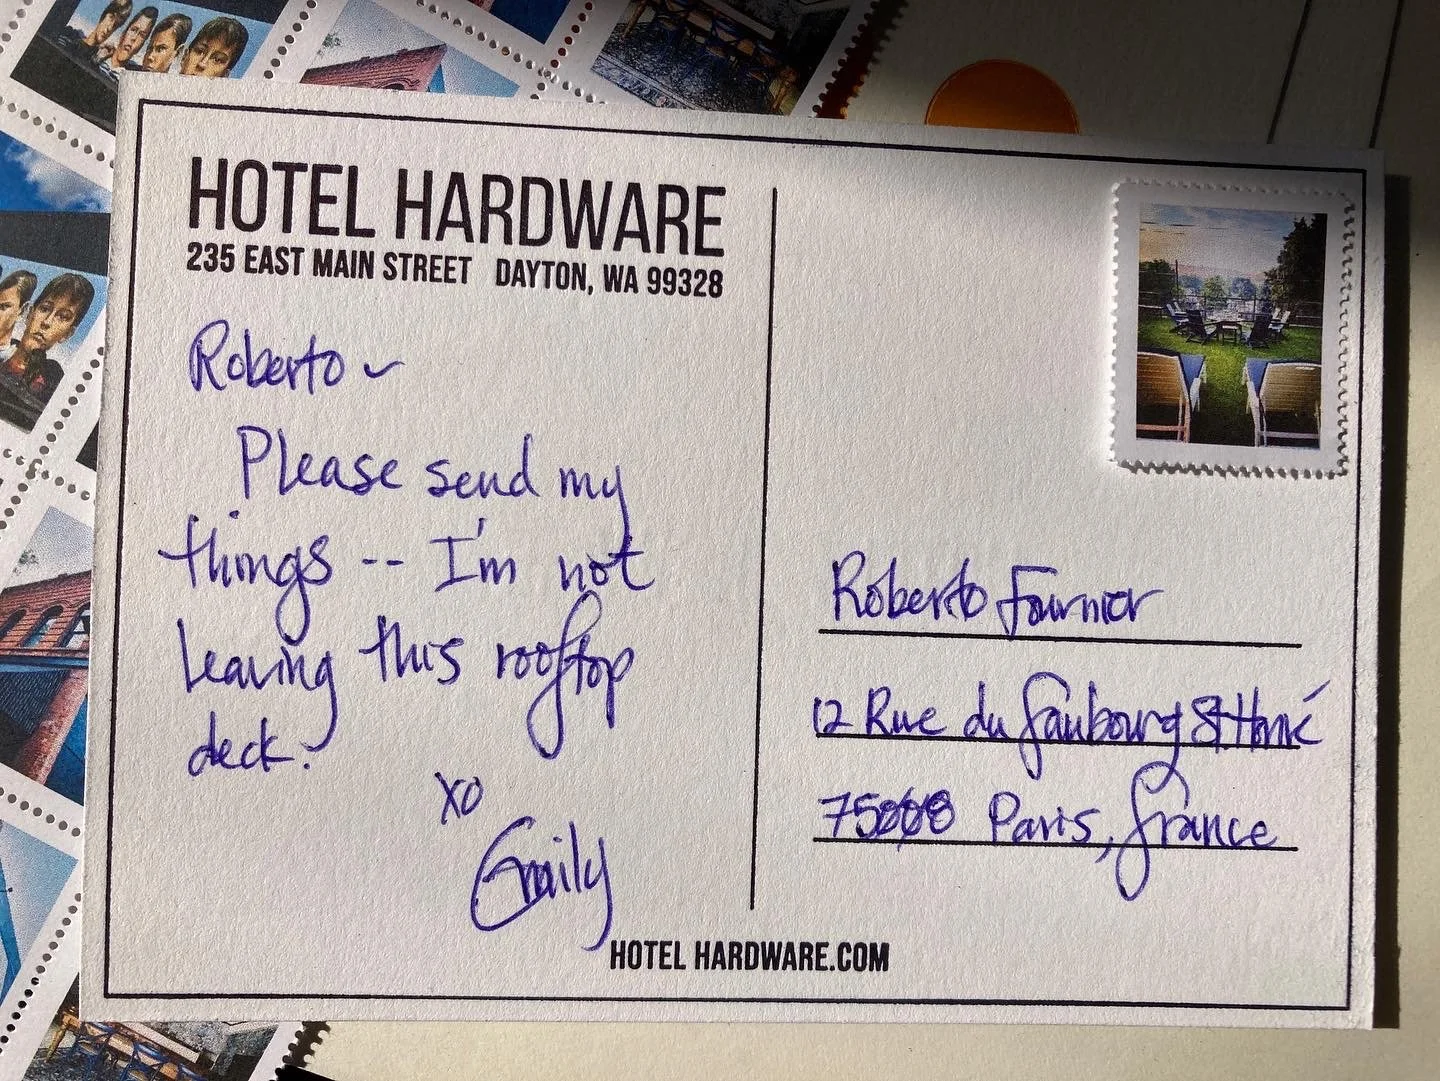 HOTEL HARDWARE
235 EAST MAIN STREET DAYTON, WA 99328
Roberto ~
Please send my
things -- I'm not
leaving this rooftop
deck.
XO
Emily
Roberto Fournier
12 Rue du Faubourg St Honoré
75008 Paris, France
HOTEL HARDWARE.COM